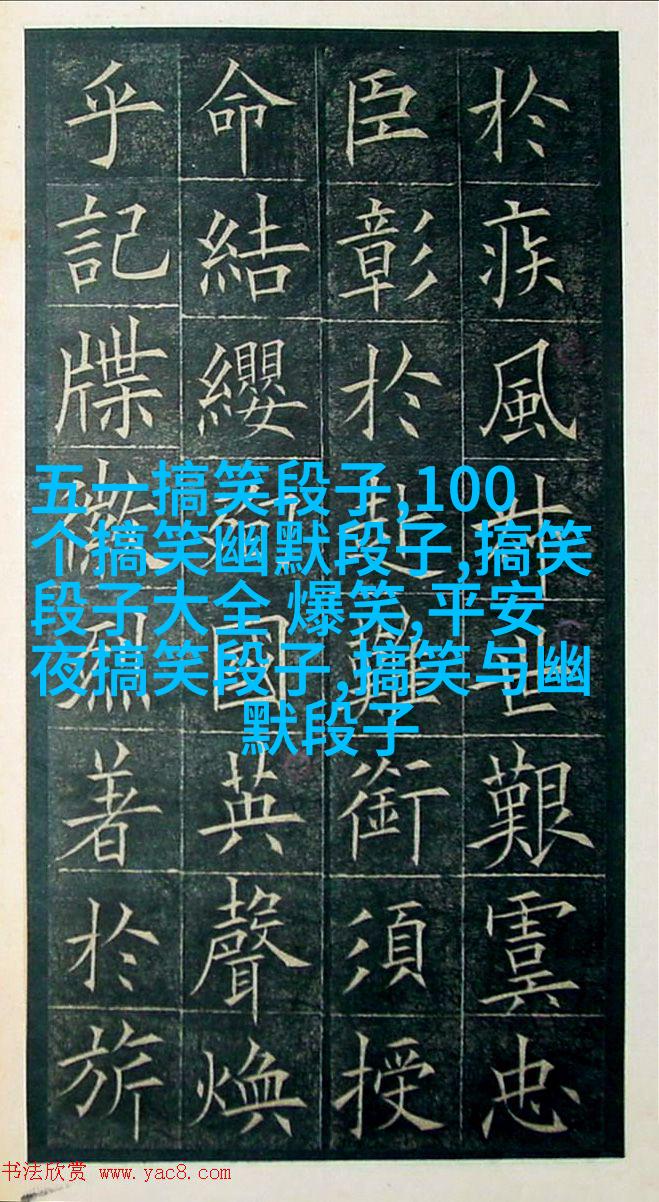 於疾風叶世艱虞忠
臣彰於赴難銜須授
命結纓殉國英聲煥
乎記牒徽烈著於旂
五一搞笑段子,100
个搞笑幽默段子,搞笑
段子大全 爆笑,平安
夜搞笑段子,搞笑与幽
默段子
书法欣赏 www.yac8.com